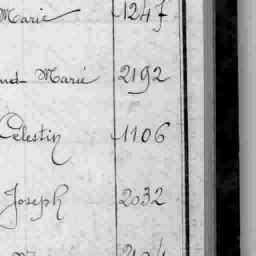 Marie 1247
nd-Marie 2192
Célestin 1106
Joseph 2032